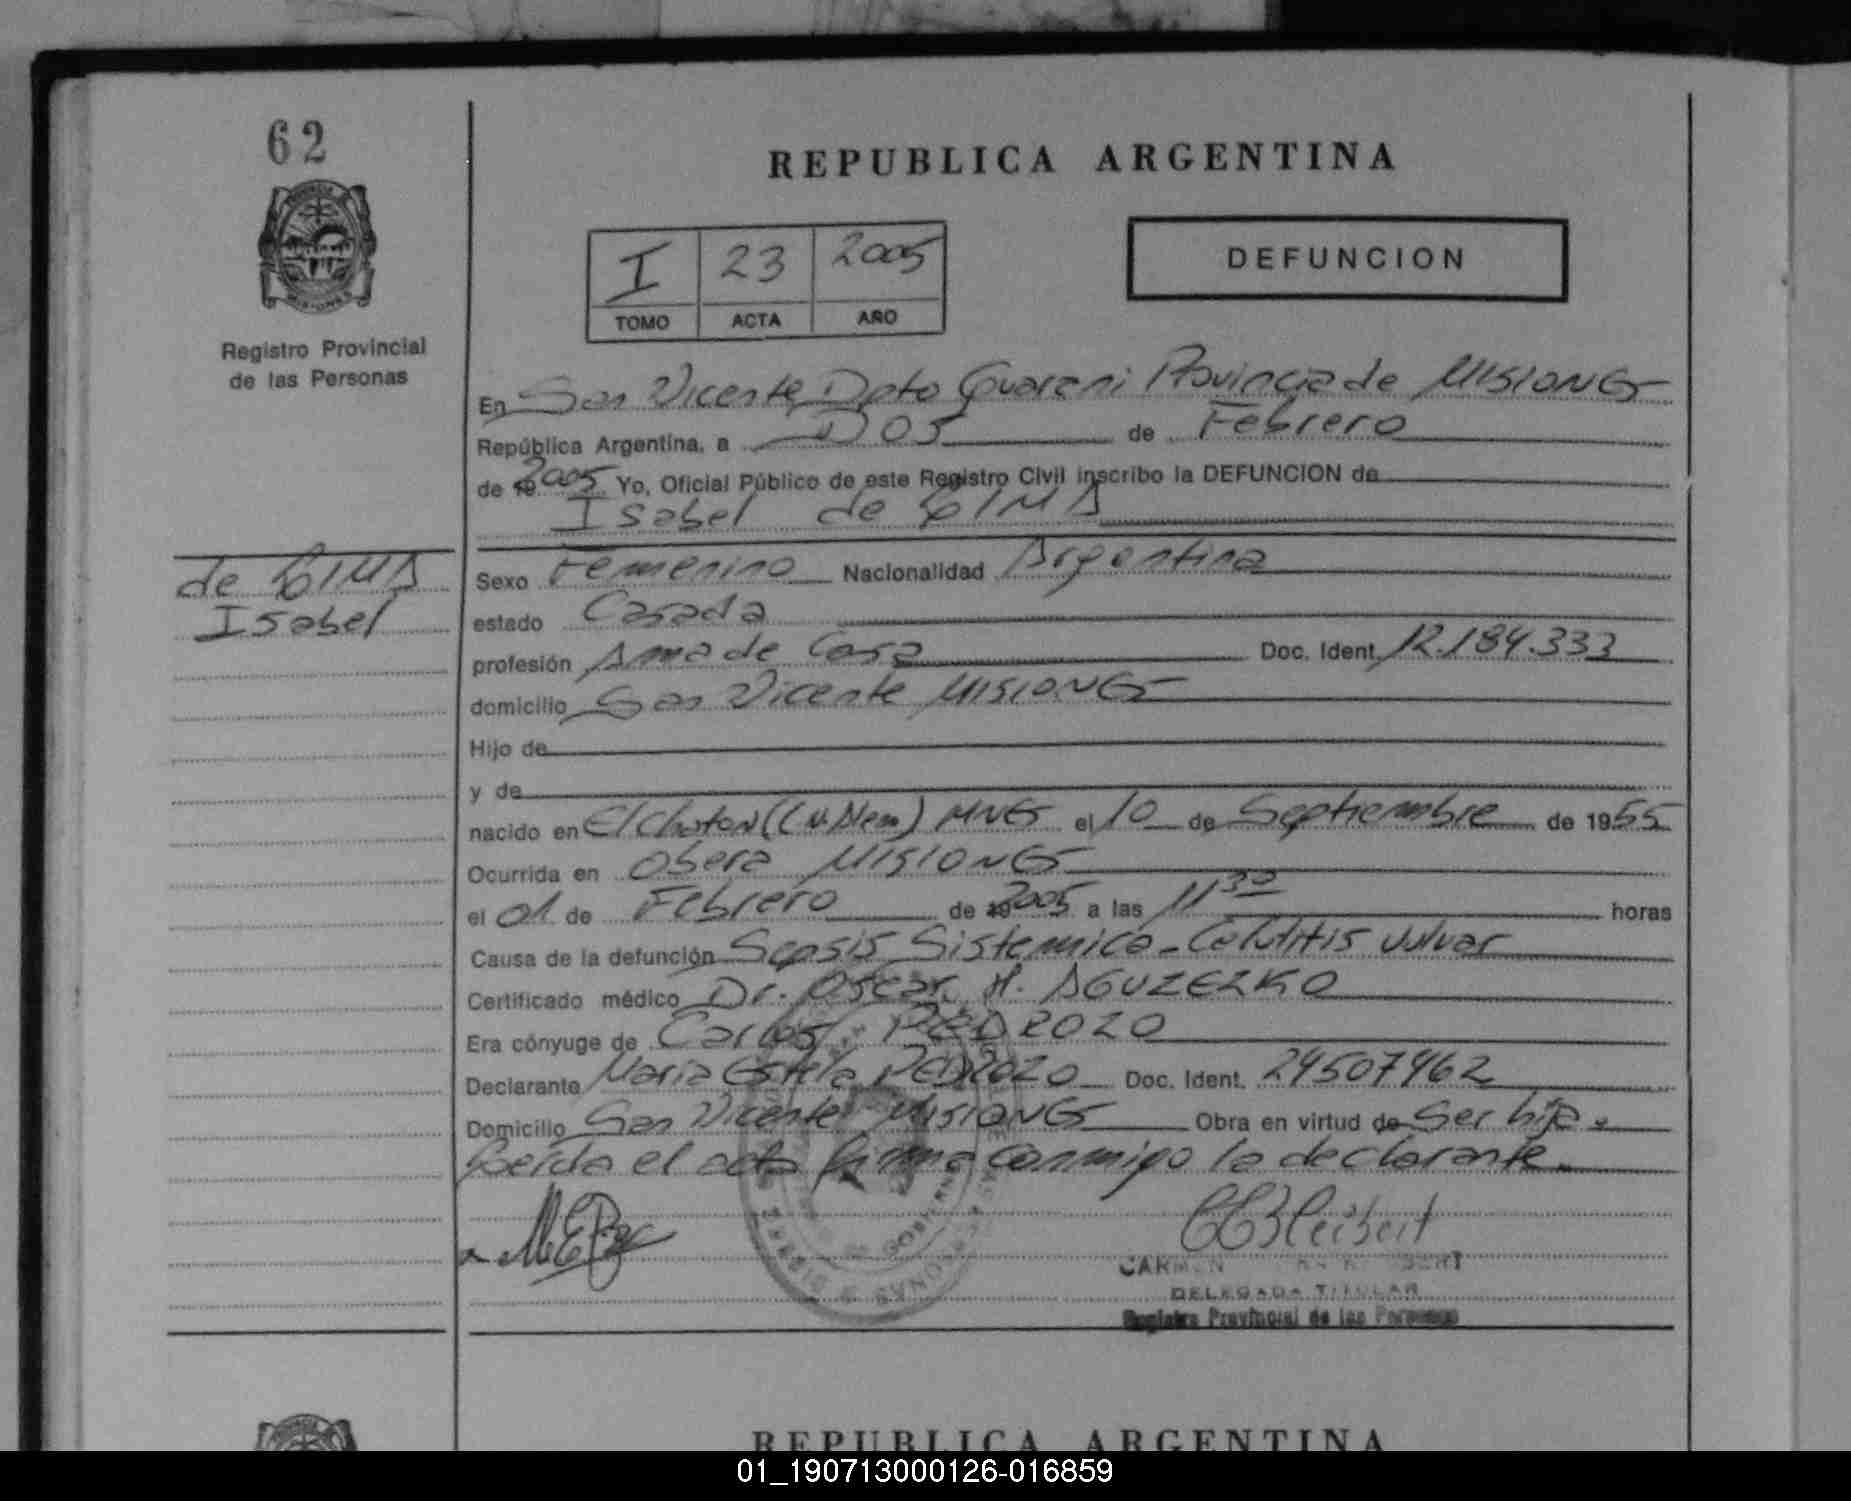 62
Registro Provincial
de las Personas
REPUBLICA ARGENTINA
I 23 2005
TOMO ACTA AÑO
DEFUNCION
En San Vicente Dpto Guarani Provincia de MISIONES
República Argentina, a DOS de Febrero
de 19 2005 Yo, Oficial Público de este Registro Civil inscribo la DEFUNCION de
Isabel de LIMA
de LIMA
Isabel
Sexo Femenino Nacionalidad Argentina
estado Casada
profesión Ama de Casa Doc. Ident. 12.184.333
domicilio San Vicente MISIONES
Hijo de
y de
nacido en El Chaton (L.N.Alem) MNES el 10 de Septiembre de 1955
Ocurrida en Obera MISIONES
el 01 de Febrero de 19 2005 a las 11 30 horas
Causa de la defunción Sepsis Sistemica - Celulitis vulvar
Certificado médico Dr. Oscar H. AGUZEZKO
Era cónyuge de Carlos PEDROZO
Declarante Maria Estela PEDROZO Doc. Ident. 24507462
Domicilio San Vicente MISIONES Obra en virtud de Ser hija.
Leida el acta firma conmigo la declarante.
CARMEN
DELEGADA TITULAR
Registro Provincial de las Personas
REPUBLICA ARGENTINA
01_190713000126-016859